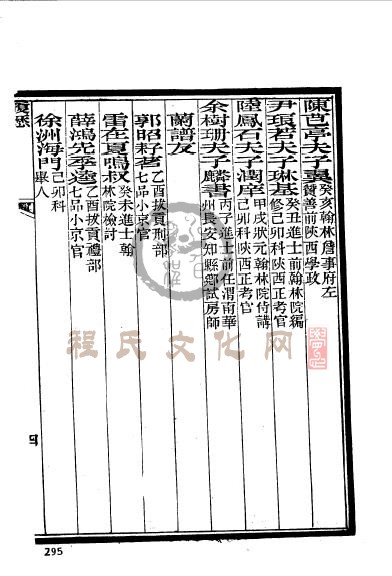 陳芑亭夫子翼 癸亥翰林詹事府左
贊善前陝西學政
尹琅若夫子琳基 癸丑進士前翰林院編
修己卯科陝西正考官
陸鳳石夫子潤庠 甲戌狀元翰林院侍講
己卯科陝西正考官
余樹珊夫子麟書 丙子進士前任渭南華
州長安知縣鄉試房師
蘭譜友
郭昭 乙酉拔貢刑部
七品小京官
雷在夏鳴叔 癸未進士翰
林院檢討
薛鴻先季逵 乙酉拔貢禮部
七品小京官
徐洲海門 己卯科
舉人
四
程氏文化网
295